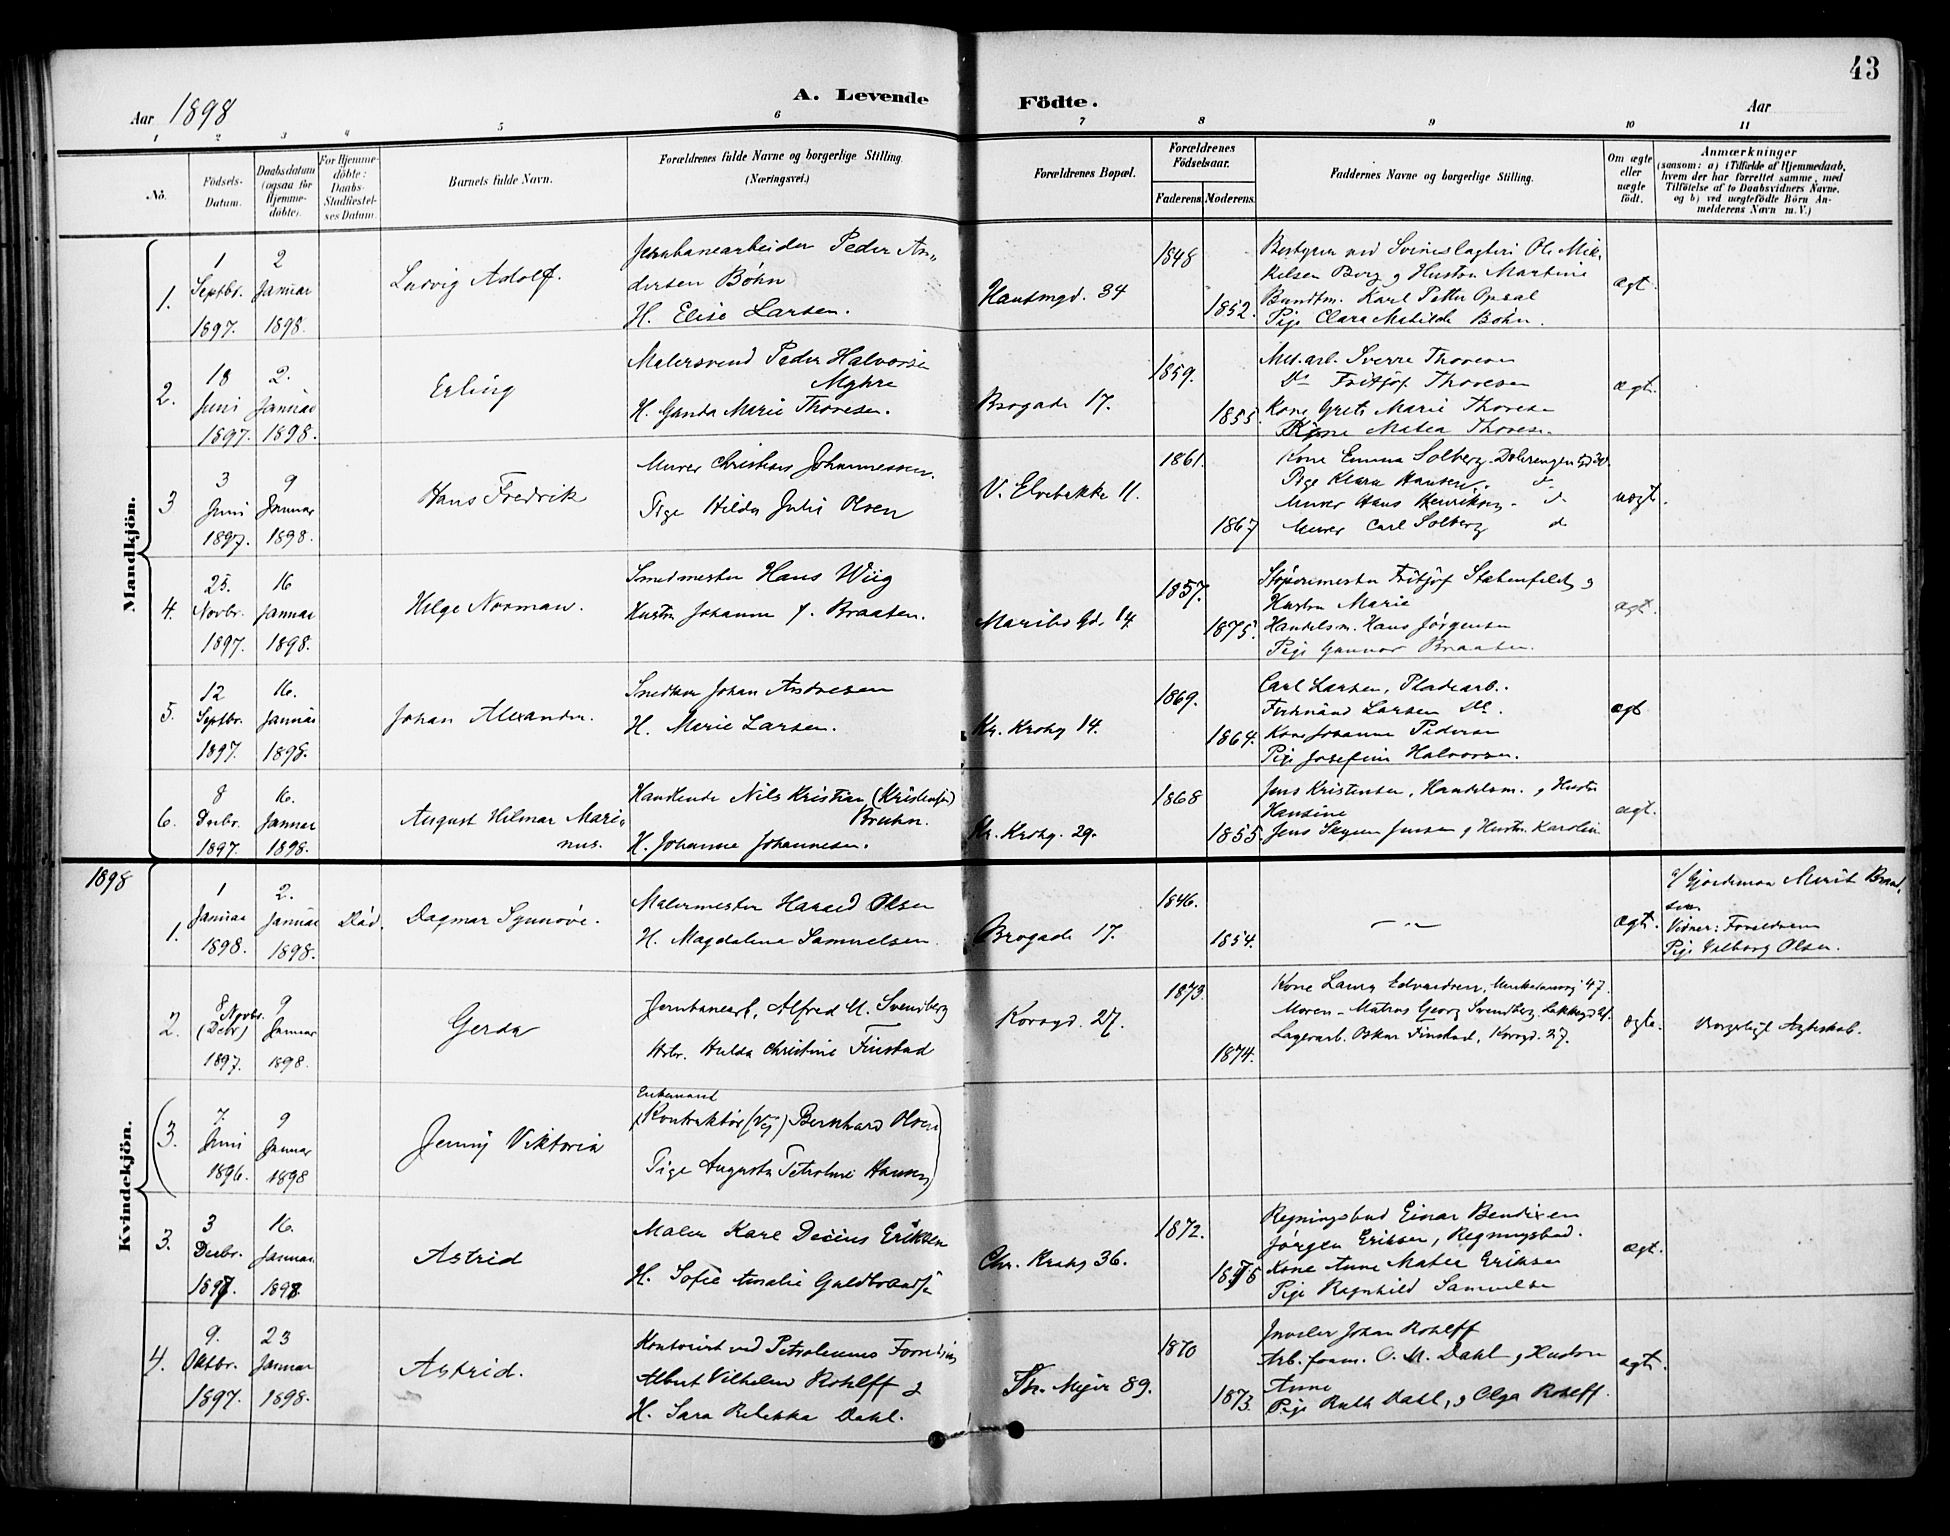 43
Aar 1898
A. Levende Födte.
Aar
1 2 3 4 5 6 7 8 9 10 11
No.
Födsels-Datum.
Daabsdatum (ogsaa for Hjemmedöbte).
For Hjemmedöbte: Daabs-Stadfæstelses Datum.
Barnets fulde Navn.
Forældrenes fulde Navne og borgerlige Stilling. (Næringsvei.)
Forældrenes Bopæl.
Forældrenes Födselsaar.
Faderens. Moderens.
Faddernes Navne og borgerlige Stilling.
Om ægte eller uægte födt.
Anmærkninger
(saasom: a) i Tilfælde af Hjemmedaab,
hvem der har forrettet samme, med
Tilföielse af to Daabsvidners Navne.
og b) ved uægtefödte Börn An-
melderens Navn m. V.)
Mandkjön.
1.
1 Septbr. 1897.
2 Januar 1898.
Ludvig Adolf.
Jernbanearbeider Peder An-
dersen Bøhn
H. Elise Larsen.
Hausmgd. 34
1848
1852.
Bestyrer ved Svineslagteri Ole Mik-
kelsen Berg og Hustru Martine
Bundtm. Karl Petter Opsal
Pige Clara Matilde Bøhn.
ægt.
2.
18 Juni 1897.
2. Januar 1898.
Erling
Malersvend Peder Halvorsen
Myhre
H. Ganda Marie Thoresen.
Brogade 17.
1859.
1855
Mek.arb. Sverre Thoresen
Do Fritjof Thoresen
Kone Grete Marie Thoresen
Kone Matea Thoresen
ægt.
3
3 Juni 1897.
9 Januar 1898.
Hans Fredrik
Murer Christian Johannessen.
Pige Hilda Julie Olsen
V. Elvebakke 11.
1861.
1867
Kone Emma Solberg. Dælenengen gd 30.
Pige Klara Hansen. d
Murer Hans Henriksen d
Murer Carl Solberg d
uægt.
4.
25. Novbr. 1897.
16 Januar 1898.
Helge Norman.
Smedmester Hans Wiig
Hustru Johanne J. Braaten.
Maribo Gd. 14.
1857.
1875.
Støperimester Fritjof Statenfeldt og
Hustru Marie
Handelsm. Hans Jørgensen
Pige Gunnor Braaten.
ægt.
5.
12 Septbr. 1897.
16. Januar 1898.
Johan Alexander.
Snedker Johan Andresen
H. Marie Larsen.
Kr. Krohg 14.
1869.
1864.
Carl Larsen, Pladearb.
Ferdinand Larsen Do.
Kone Johanne Pedersen
Pige Josefine Halvorsen.
ægt
6.
8 Decbr. 1897.
16. Januar 1898.
August Hilmar Mari-
nus.
Handlende Nils Kristian (Kristensen)
Bruhn.
H. Johanne Johannesen.
Kr. Krohg. 29.
1868
1855.
Jens Kristensen, Handelsm. og Hustru
Hansine
Jens Jensen og Hustr. Karoline
ægt.
1898
Kvindekjön.
1.
1 Januar 1898.
2. Januar 1898.
Død.
Dagmar Synnøve.
Malermester Harald Olsen
H. Magdalena Samuelsen.
Brogade 17.
1846.
1854.
— " —
ægt.
a/ Gjordemor Marit Brand-
sen
Vidner: Forældrene
Pige Valborg Olsen.
2.
8 Novbr. (Debr) 1897.
9 Januar 1898.
Gerda
Jernbanearb. Alfred M. Svendberg
Hstr. Hulda Christine Finstad
Korsgd. 27.
1873.
1874.
Kone Laura Edvardsen, 47.
Moren - Matros Georg Svendberg, Lakkegd
Lagerarb. Oskar Finstad, Korsgd. 27.
ægte.
Borgerligt Ægteskab.
(3.
7. Juni 1896.
9 Januar 1898
Jenny Viktoria
Enkemand
(Kontraktør (Vej) Bernhard Olsen
Pige Augusta Petroline Hansen)
3.
3 Decbr. 1897
16. Januar. 1898
Astrid
Maler Karl Decius Eriksen
H. Sofie Amalie Guldbrandsen
Chr. Krohg 36.
1872.
1875
Regningsbud Einar Bendixen
Jørgen Eriksen, Regningsbud.
Kone Anne Matea Eriksen
Pige Ragnhild Samuelsen
ægt.
4.
9. Oktbr. 1897.
23 Januar 1898.
Astrid.
Kontorist ved Petroleums Forretning
Albert Vilhelm Rohlff og
H. Sara Rebekka Dahl.
Th. Meyer 89.
1870
1873.
Juveler Johan Rohlff
Arb.form. O. M. Dahl og Hustru
Anne
Pige Ruth Dahl, og Olga Rohlff.
ægt.